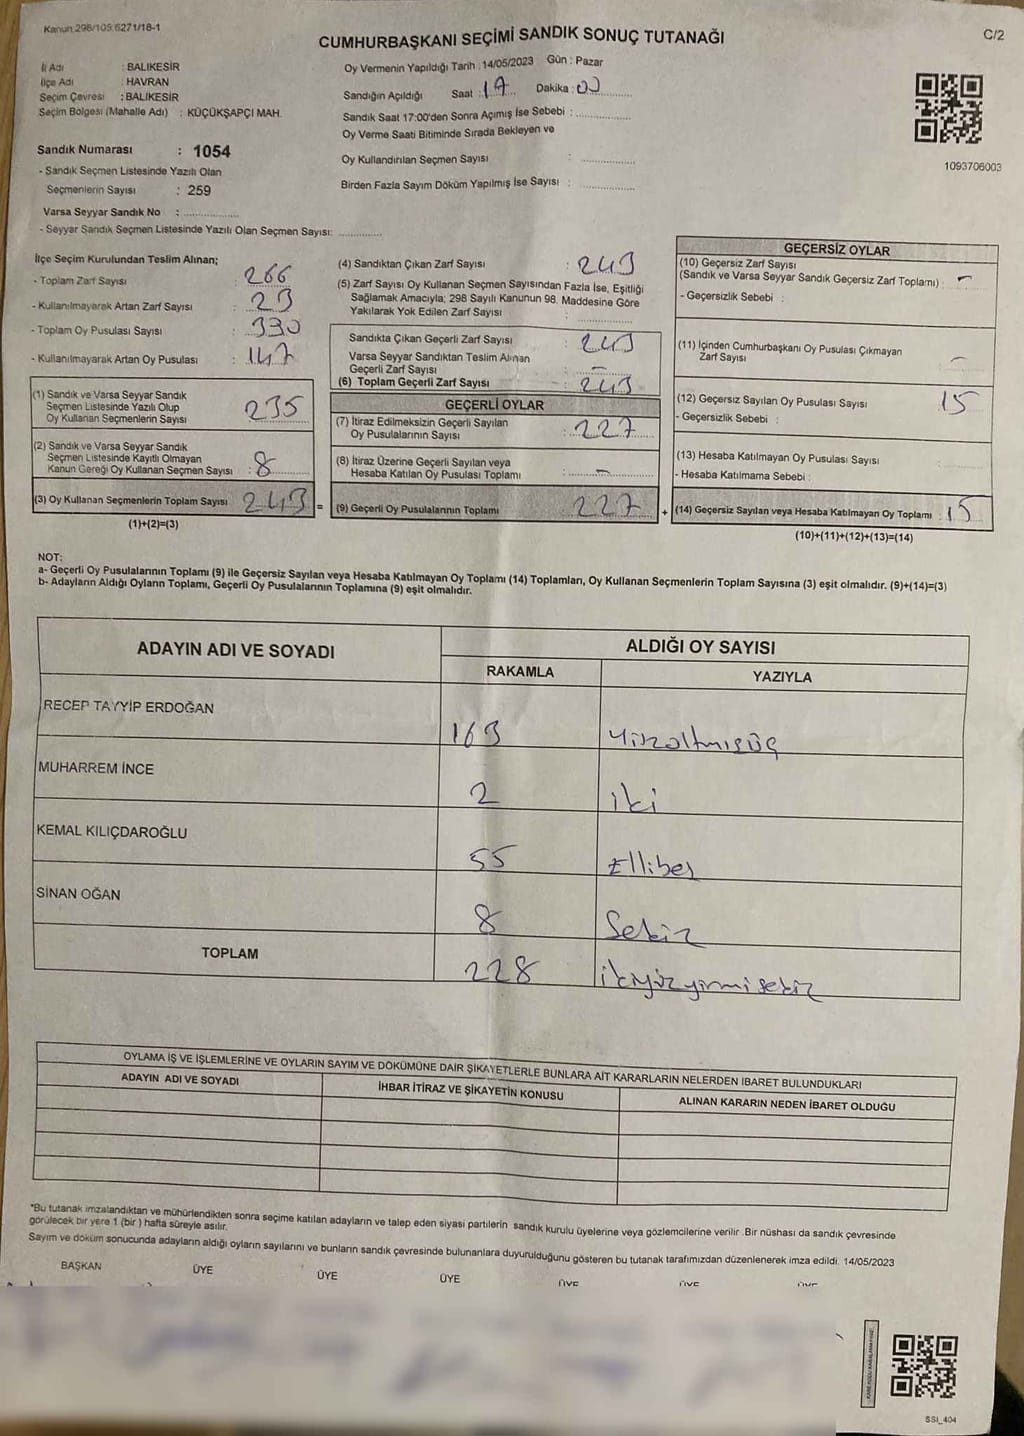 Kanun 298/109 6271/18-1
CUMHURBAŞKANI SEÇİMİ SANDIK SONUÇ TUTANAĞI
C/2
İl Adı : BALIKESİR
İlçe Adı : HAVRAN
Seçim Çevresi : BALIKESİR
Seçim Bölgesi (Mahalle Adı) : KÜÇÜKŞAPÇI MAH.
Sandık Numarası : 1054
- Sandık Seçmen Listesinde Yazılı Olan
Seçmenlerin Sayısı : 259
Varsa Seyyar Sandık No :
- Seyyar Sandık Seçmen Listesinde Yazılı Olan Seçmen Sayısı:
Oy Vermenin Yapıldığı Tarih : 14/05/2023 Gün : Pazar
Sandığın Açıldığı Saat : 17 Dakika : 00
Sandık Saat 17:00'den Sonra Açımış İse Sebebi :
Oy Verme Saati Bitiminde Sırada Bekleyen ve
Oy Kullandırılan Seçmen Sayısı :
Birden Fazla Sayım Döküm Yapılmış İse Sayısı :
1093706003
İlçe Seçim Kurulundan Teslim Alınan;
- Toplam Zarf Sayısı : 266
- Kullanılmayarak Artan Zarf Sayısı : 23
- Toplam Oy Pusulası Sayısı : 390
- Kullanılmayarak Artan Oy Pusulası : 147
(1) Sandık ve Varsa Seyyar Sandık
Seçmen Listesinde Yazılı Olup
Oy Kullanan Seçmenlerin Sayısı : 235
(2) Sandık ve Varsa Seyyar Sandık
Seçmen Listesinde Kayıtlı Olmayan
Kanun Gereği Oy Kullanan Seçmen Sayısı : 8
(3) Oy Kullanan Seçmenlerin Toplam Sayısı : 243 =
(1)+(2)=(3)
(4) Sandıktan Çıkan Zarf Sayısı : 243
(5) Zarf Sayısı Oy Kullanan Seçmen Sayısından Fazla İse, Eşitliği
Sağlamak Amacıyla; 298 Sayılı Kanunun 98. Maddesine Göre
Yakılarak Yok Edilen Zarf Sayısı :
Sandıkta Çıkan Geçerli Zarf Sayısı : 243
Varsa Seyyar Sandıktan Teslim Alınan
Geçerli Zarf Sayısı : -
(6) Toplam Geçerli Zarf Sayısı : 243
GEÇERLİ OYLAR
(7) İtiraz Edilmeksizin Geçerli Sayılan
Oy Pusulalarının Sayısı : 227
(8) İtiraz Üzerine Geçerli Sayılan veya
Hesaba Katılan Oy Pusulası Toplamı : -
(9) Geçerli Oy Pusulalarının Toplamı 227 +
GEÇERSİZ OYLAR
(10) Geçersiz Zarf Sayısı
(Sandık ve Varsa Seyyar Sandık Geçersiz Zarf Toplamı) : -
- Geçersizlik Sebebi :
(11) İçinden Cumhurbaşkanı Oy Pusulası Çıkmayan
Zarf Sayısı -
(12) Geçersiz Sayılan Oy Pusulası Sayısı : 15
- Geçersizlik Sebebi :
(13) Hesaba Katılmayan Oy Pusulası Sayısı
- Hesaba Katılmama Sebebi :
(14) Geçersiz Sayılan veya Hesaba Katılmayan Oy Toplamı : 15
(10)+(11)+(12)+(13)=(14)
NOT:
a- Geçerli Oy Pusulalarının Toplamı (9) ile Geçersiz Sayılan veya Hesaba Katılmayan Oy Toplamı (14) Toplamları, Oy Kullanan Seçmenlerin Toplam Sayısına (3) eşit olmalıdır. (9)+(14)=(3)
b- Adayların Aldığı Oyların Toplamı, Geçerli Oy Pusulalarının Toplamına (9) eşit olmalıdır.
ADAYIN ADI VE SOYADI
ALDIĞI OY SAYISI
RAKAMLA YAZIYLA
RECEP TAYYİP ERDOĞAN 163 Yüzaltmışüç
MUHARREM İNCE 2 iki
KEMAL KILIÇDAROĞLU 55 Ellibeş
SİNAN OĞAN 8 Sekiz
TOPLAM 228 ikiyüzyirmisekiz
OYLAMA İŞ VE İŞLEMLERİNE VE OYLARIN SAYIM VE DÖKÜMÜNE DAİR ŞİKAYETLERLE BUNLARA AİT KARARLARIN NELERDEN İBARET BULUNDUKLARI
ADAYIN ADI VE SOYADI İHBAR İTİRAZ VE ŞİKAYETİN KONUSU ALINAN KARARIN NEDEN İBARET OLDUĞU
*Bu tutanak imzalandıktan ve mühürlendikten sonra seçime katılan adayların ve talep eden siyasi partilerin sandık kurulu üyelerine veya gözlemcilerine verilir. Bir nüshası da sandık çevresinde
görülecek bir yere 1 (bir) hafta süreyle asılır.
Sayım ve döküm sonucunda adayların aldığı oyların sayılarını ve bunların sandık çevresinde bulunanlara duyurulduğunu gösteren bu tutanak tarafımızdan düzenlenerek imza edildi. 14/05/2023
BAŞKAN ÜYE ÜYE ÜYE ÜYE ÜYE ÜYE
SSI_404